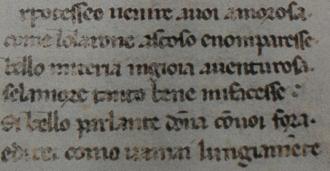 rpotesseo uenire auoi amorosa.
come lolarone ascoso enomparisse.
bello mi teria ingioia auenturosa.
selamore tanto bene mi facesse
Si bello parlante dōna cōuoi fora.
edirei como uamai lungiamēte